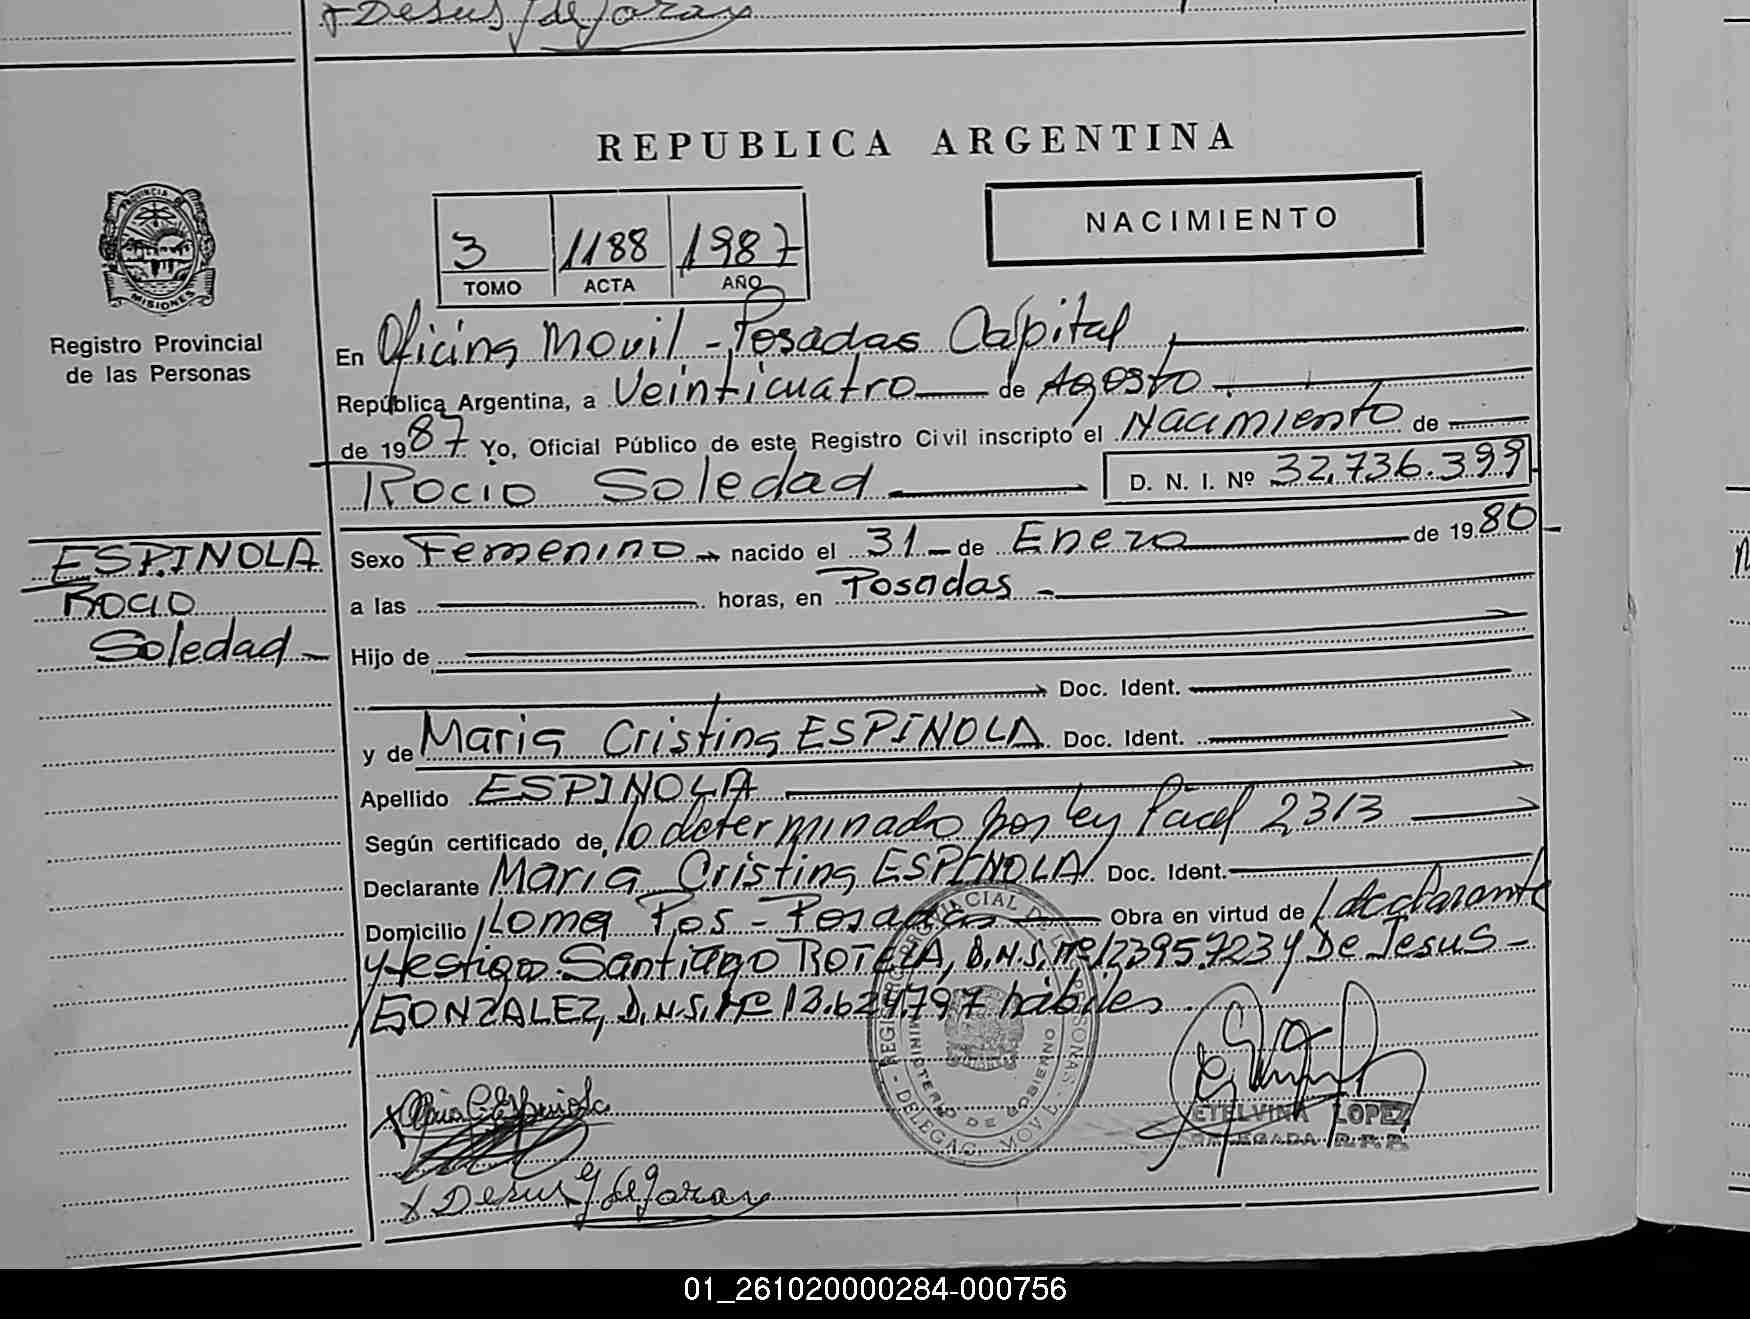 REPUBLICA ARGENTINA
PROVINCIA DE
MISIONES
Registro Provincial
de las Personas
3 1188 1987
TOMO ACTA AÑO
NACIMIENTO
En Oficina Movil - Posadas Capital
República Argentina, a Veinticuatro de Agosto
de 1987 Yo, Oficial Público de este Registro Civil inscripto el Nacimiento de
Rocio Soledad D. N. I. Nº 32.736.399
ESPINOLA
Rocio
Soledad
Sexo Femenino nacido el 31 de Enero de 1980
a las horas, en Posadas
Hijo de
Doc. Ident.
y de Maria Cristina ESPINOLA Doc. Ident.
Apellido ESPINOLA
Según certificado de lo determinado por ley 2313
Declarante Maria Cristina ESPINOLA Doc. Ident.
Domicilio Loma Pos - Posadas Obra en virtud de declarante
y testigos Santiago D.N.I. Nº 12395.723 y De Jesus
GONZALEZ, D.N.I. Nº 13.624.797 hábiles
MINISTERIO DE GOBIERNO
ETELVINA LOPEZ
DELEGADA R.P.P.
01_261020000284-000756